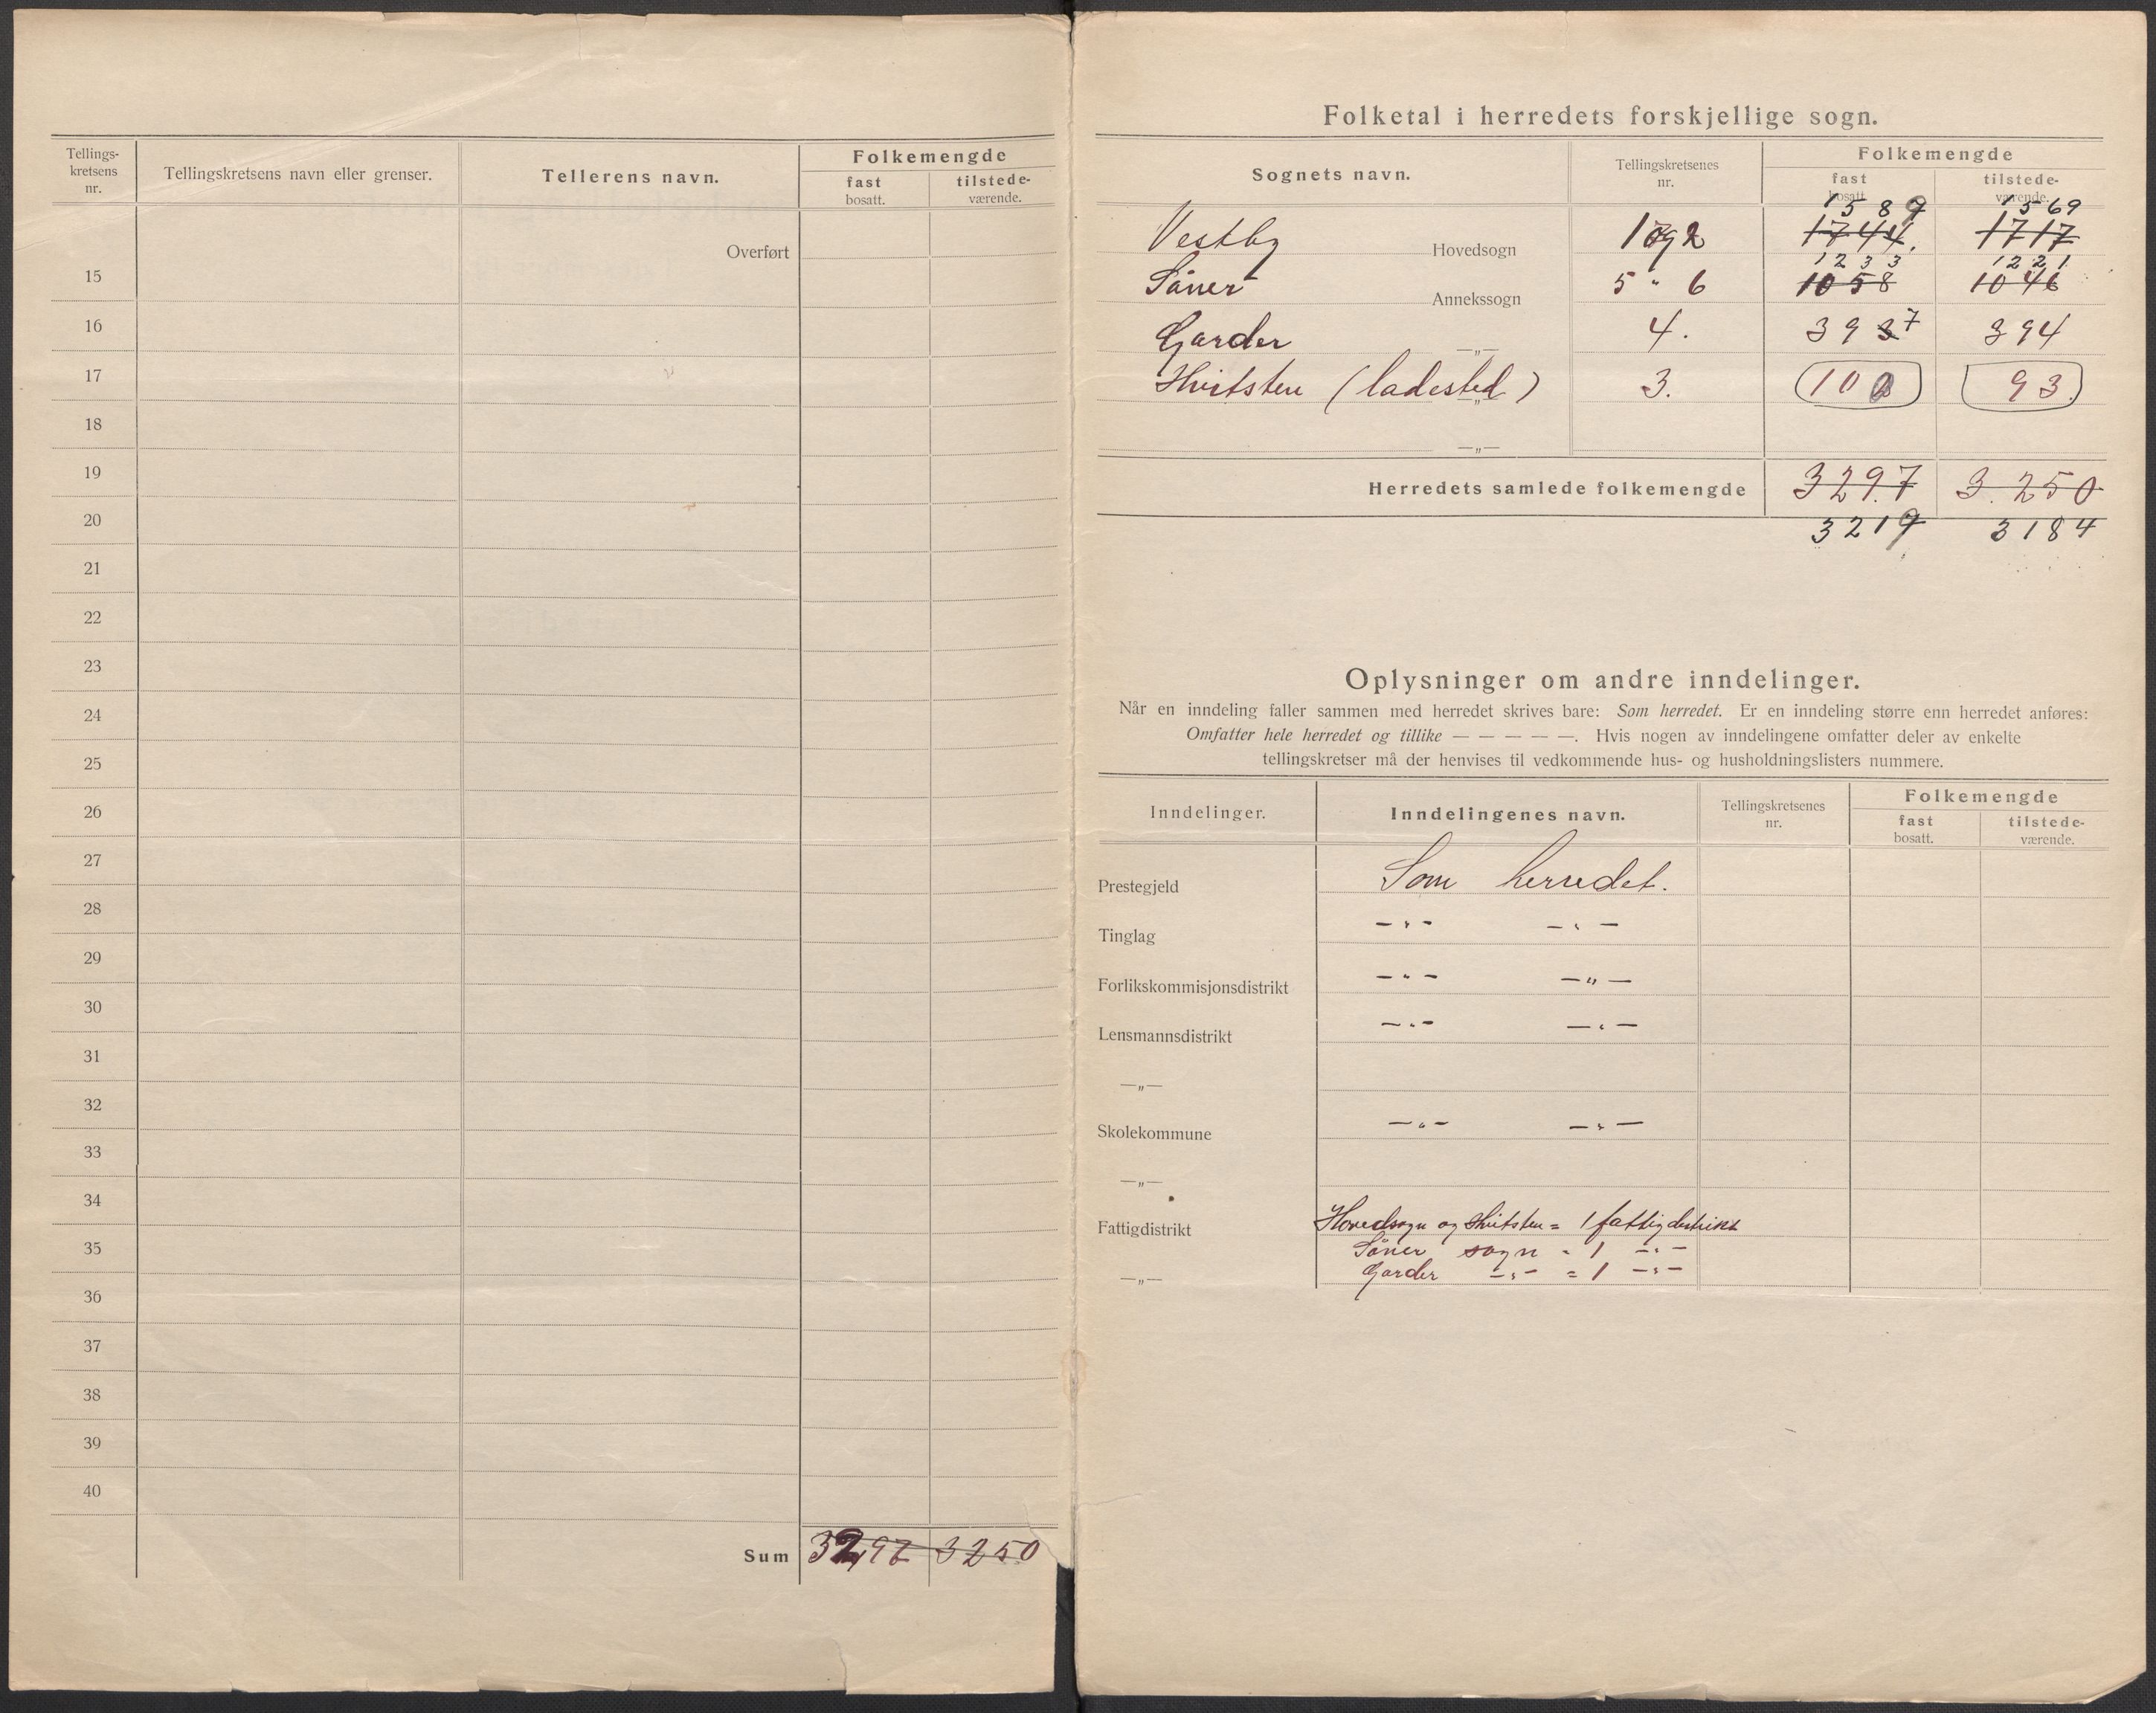 Tellings-
kretsens
nr.
Tellingskretsens navn eller grenser.
Tellerens navn.
Folkemengde
fast
bosatt.
tilstede-
værende.
Overført
15
16
17
18
19
20
21
22
23
24
25
26
27
28
29
30
31
32
33
34
35
36
37
38
39
40
Sum 3297 3250
Folketal i herredets forskjellige sogn.
Sognets navn.
Tellingskretsenes
nr.
Folkemengde
fast
bosatt.
tilstede-
værende.
1589 1569
Vestby Hovedsogn 1 og 2 1744. 1717
1233 1221
Såner Annekssogn 5 " 6 1058 1046
Garder —„— 4. 397 394
Hvitsten (ladested) —„— 3. 100 93.
—„—
Herredets samlede folkemengde 3297 3250
3219 3184
Oplysninger om andre inndelinger.
Når en inndeling faller sammen med herredet skrives bare: Som herredet. Er en inndeling større enn herredet anføres:
Omfatter hele herredet og tillike — — — — —. Hvis nogen av inndelingene omfatter deler av enkelte
tellingskretser må der henvises til vedkommende hus- og husholdningslisters nummere.
Inndelinger.
Inndelingenes navn.
Tellingskretsenes
nr.
Folkemengde
fast
bosatt.
tilstede-
værende.
Prestegjeld Som herredet.
Tinglag —„— —„—
Forlikskommisjonsdistrikt —„— —„—
Lensmannsdistrikt —„— —„—
—„—
Skolekommune —„— —„—
—„—
Fattigdistrikt Hovedsogn og Hvitsten = 1 fattigdistrikt
Såner sogn = 1 —„—
—„— Garder —„— = 1 —„—